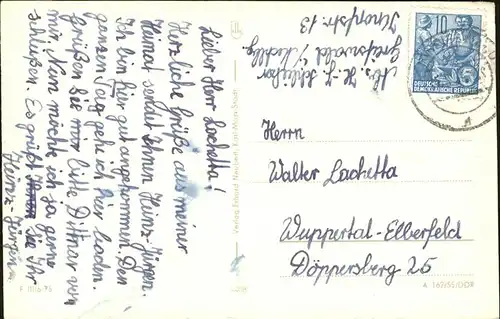 Lieber Herr Lachetta!
Herzliche Grüße aus meiner
Heimat sendet Ihnen Heinz-Jürgen.
Ich bin hier gut angekommen. Den
ganzen Tag geh ich hier baden.
Grüßen Sie mir bitte Dittmar von
mir. Nun möchte ich ja gerne
schließen. Es grüßt Sie Ihr
Heinz-Jürgen
H.-J.
Greifswald
13
10
DEUTSCHE
DEMOKRATISCHE REPUBLIK
Herrn
Walter Lachetta
Wuppertal-Elberfeld
Döppersberg 25
Verlag Erhard Neubert, Karl-Marx-Stadt
A 169/55/DDR